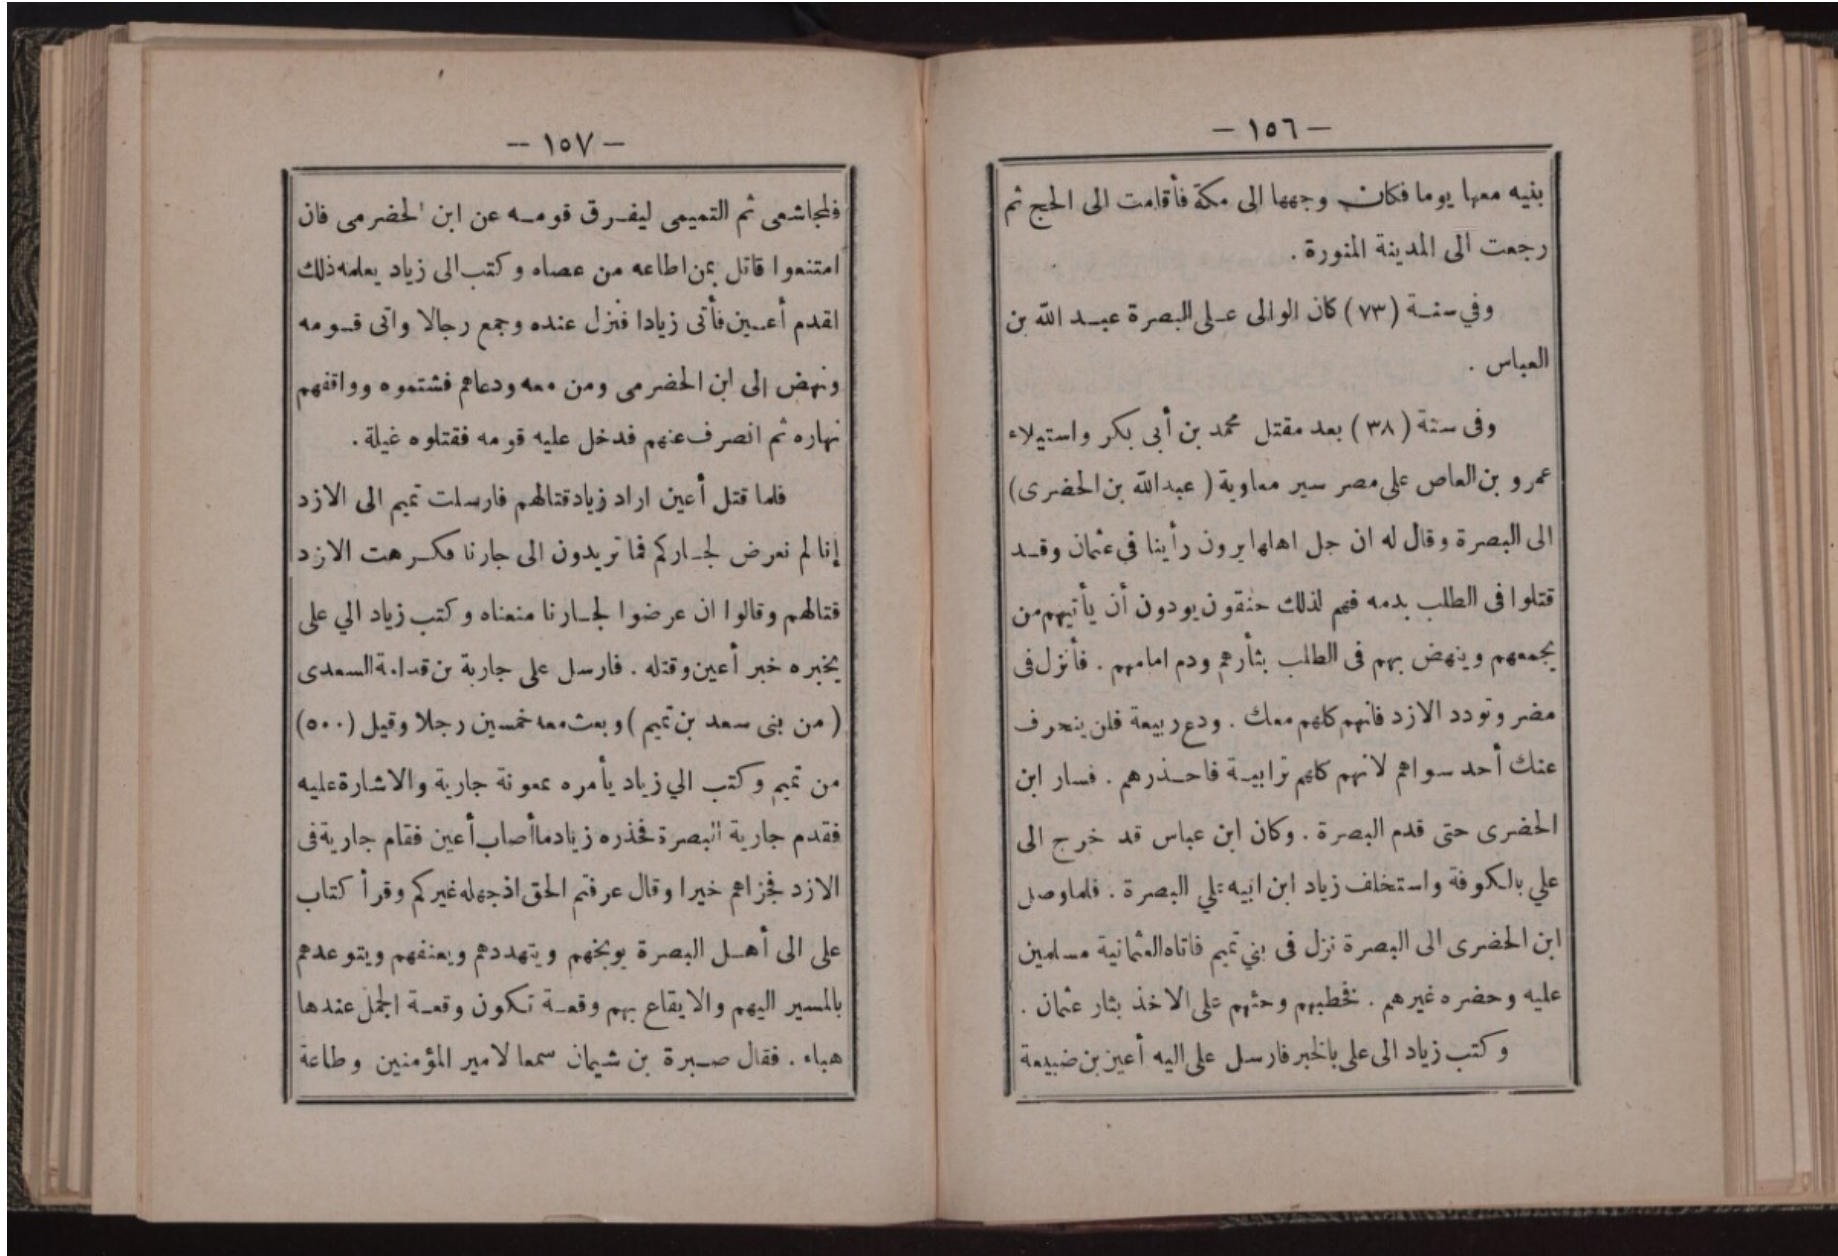 — ١٥٦ —
بنيه معها يوما فكان وجهها الى مكة فأقامت الى الحج ثم
رجعت الى المدينة المنورة .
وفي سنة (٧٣) كان الوالى على البصرة عبد الله بن
العباس .
وفى سنة (٣٨) بعد مقتل محمد بن أبى بكر واستيلاء
عمرو بن العاص على مصر سير معاوية (عبد الله بن الحضرى)
الى البصرة وقال له ان جل اهلها يرون رأينا فى عثمان وقد
قتلوا فى الطلب بدمه فهم لذلك حنقون يودون أن يأتيهم من
يجمعهم وينهض بهم فى الطلب بثأرهم ودم امامهم . فأنزل فى
مضر وتودد الازد فانهم كلهم معك . ودع ربيعة فلن ينحرف
عنك أحد سواهم لانهم كلهم ترابية فاحذرهم . فسار ابن
الحضرى حتى قدم البصرة . وكان ابن عباس قد خرج الى
علي بالكوفة واستخلف زياد ابن ابيه على البصرة . فلما وصل
ابن الحضرى الى البصرة نزل فى بني تميم فاتاه العثمانية مسلمين
عليه وحضره غيرهم . فخطبهم وحثهم على الاخذ بثار عثمان .
وكتب زياد الى على بالخبر فارسل على اليه أعين بن ضبيعة
— ١٥٧ —
فلمجاشعى ثم التميمى ليفرق قومه عن ابن الحضرمى فان
امتنعوا قاتل بمن اطاعه من عصاه وكتب الى زياد يعلمه ذلك
اقدم أعين فأتى زيادا فنزل عنده وجمع رجالا واتى قومه
ونهض إلى ابن الحضرمى ومن معه ودعاهم فشتموه وواقفهم
نهاره ثم انصرف عنهم فدخل عليه قومه فقتلوه غيلة .
فلما قتل أعين اراد زياد قتالهم فارسلت تميم الى الازد
إنا لم نعرض لجاركم فما تريدون الى جارنا فكرهت الازد
قتالهم وقالوا ان عرضوا لجارنا منعناه وكتب زياد الي على
يخبره خبر أعين وقتله . فارسل على جارية بن قدامة السعدى
(من بنى سعد بن تميم) وبعث معه خمسين رجلا وقيل (٥٠٠)
من تميم وكتب الي زياد يأمره بمعونة جارية والاشارة عليه
فقدم جارية البصرة فحذره زياد ما أصاب أعين فقام جارية فى
الازد فجزاهم خيرا وقال عرفتم الحق اذ جهله غيركم وقرأ كتاب
على الى أهل البصرة يوبخهم ويتهددهم ويعنفهم ويتوعدهم
بالمسير اليهم والايقاع بهم وقعة تكون وقعة الجمل عندها
هباء . فقال صبرة بن شيمان سمعا لامير المؤمنين وطاعة